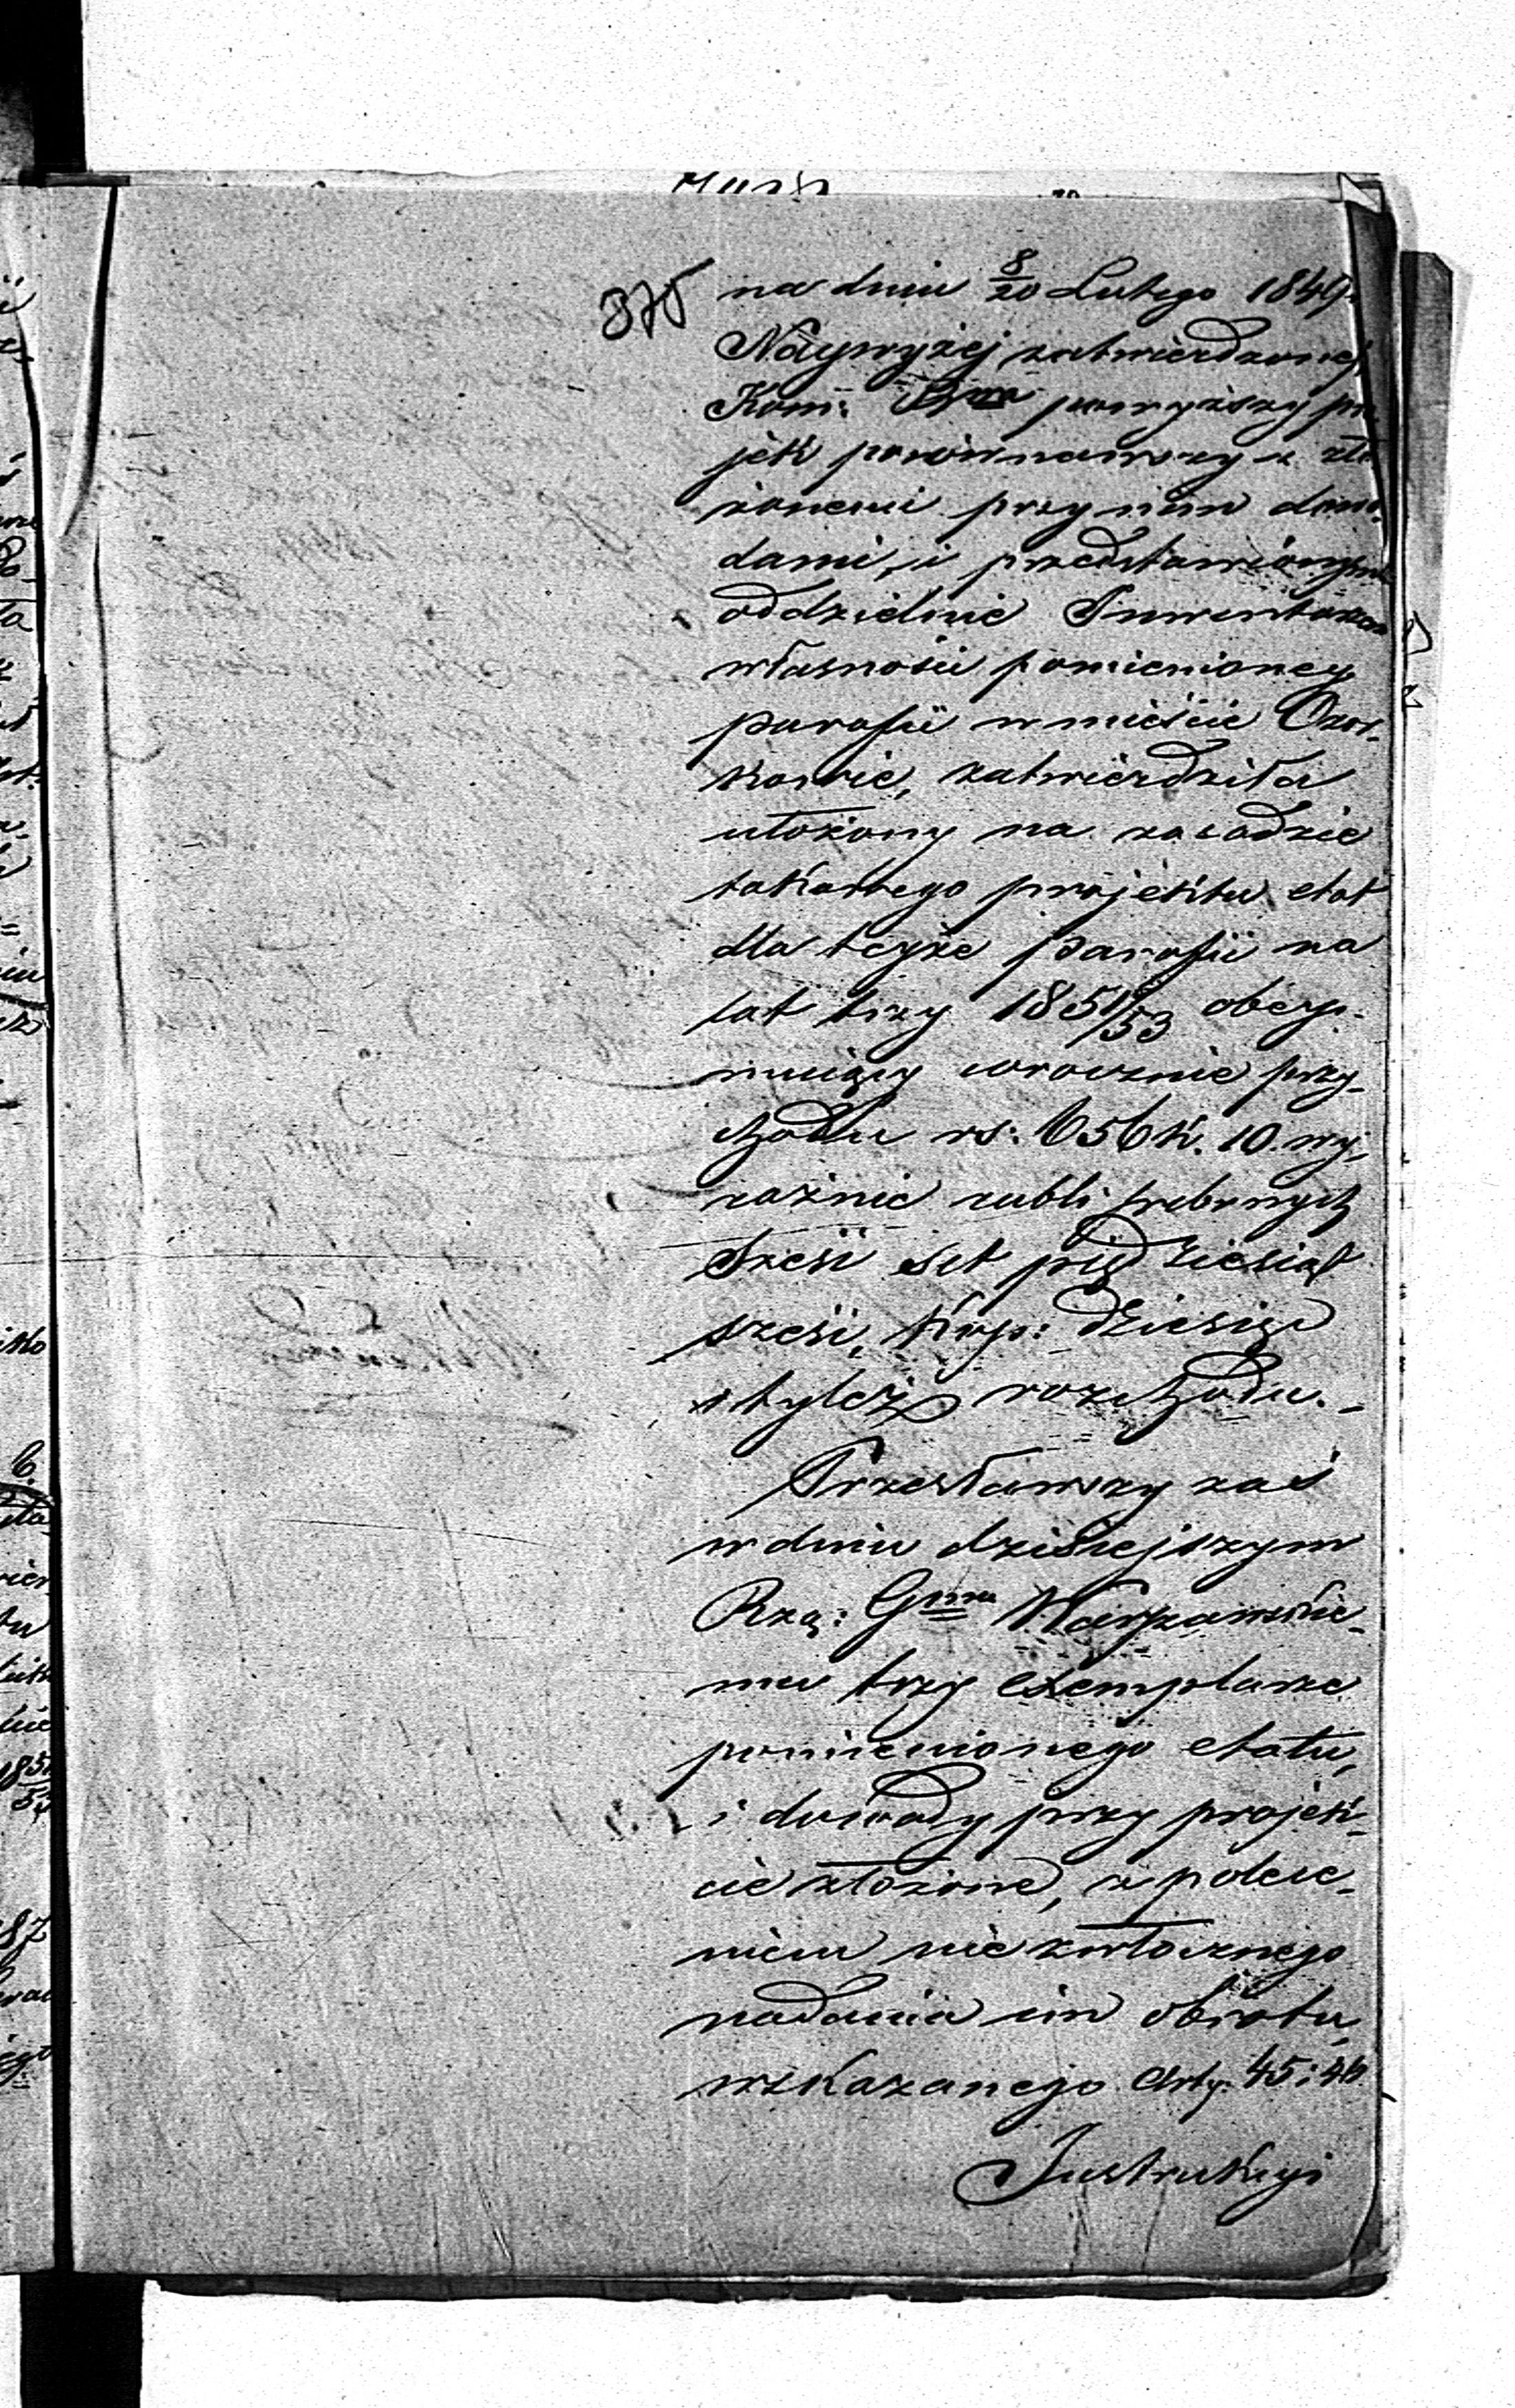 375
na dniu 8/20 Lutego 1849
Naywyżej zatwierdzonej,
Kom: powyższy pro
jekt porównawszy z zło
żonemi przy nim dowo
dami, i przedstawionym
oddzielnie Inwentarzem
własności pomienioney
parafii w mieście Ozor-
kowie, zatwierdziła
ułożony na zasadzie
takowego projektu etat
dla teyże parafii na
lat trzy 1851/53 obey-
muiący corocznie przy-
chodu rs: 656 k. 10. wy-
raźnie rubli srebrnych
sześć set pięćdziesiąt
sześć, kop: dziesięć
i tyleż rozchodu.-
Przesławszy zaś
w dniu dzisiejszym
Rzą: Gmu Warszawskie-
mu trzy exemplarze
pomienionego etatu,
i dowody przy projek-
cie złożone, z polece-
niem niezwłocznego
nadania im obrotu,
wskazanego Arty: 45 i 46
Instrukcyi